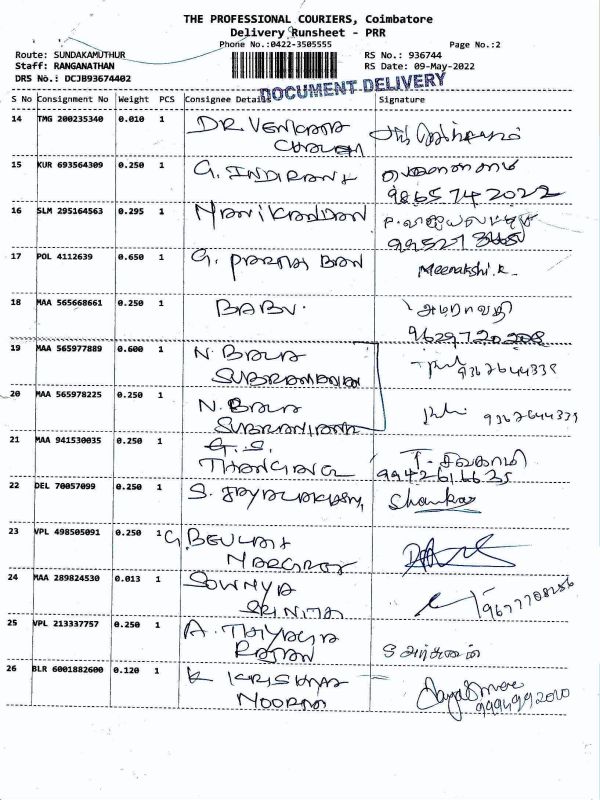 THE PROFESSIONAL COURIERS, Coimbatore
Delivery Runsheet - PRR
Phone No.:0422-3505555 Page No.:2
Route: SUNDAKAMUTHUR RS No.: 936744
Staff: RANGANATHAN RS Date: 09-May-2022
DRS No.: DCJB93674402
DOCUMENT DELIVERY
S No Consignment No Weight PCS Consignee Details Signature
14 TMG 200235340 0.010 1 DR VENKATA
15 KUR 693564309 0.250 1 G. INDIRANI
9865742022
16 SLM 295164563 0.295 1 MANIKANDAN
99527
17 POL 4112639 0.650 1 G. Meenakshi.R.
18 MAA 565668661 0.250 1 BABU. அமராவதி
19 MAA 565977889 0.600 1 N. BALA
SUBRAMANIAN 9367644339
20 MAA 565978225 0.250 1 N. BALA 9367644339
SUBRAMANIAN
21 MAA 941530035 0.250 1 G.S. T. சிவகாமி
THANGAVEL 9942616635
22 DEL 70057099 0.250 1 S. Shankar
23 VPL 498505091 0.250 1 G. BEULAH
24 MAA 289824530 0.013 1 SOWMYA
25 VPL 213337757 0.250 1 A. THIYAGA
RAJAN S அர்ச்சுனன்
26 BLR 6001882600 0.120 1 K KRISHNA
MOORTHY